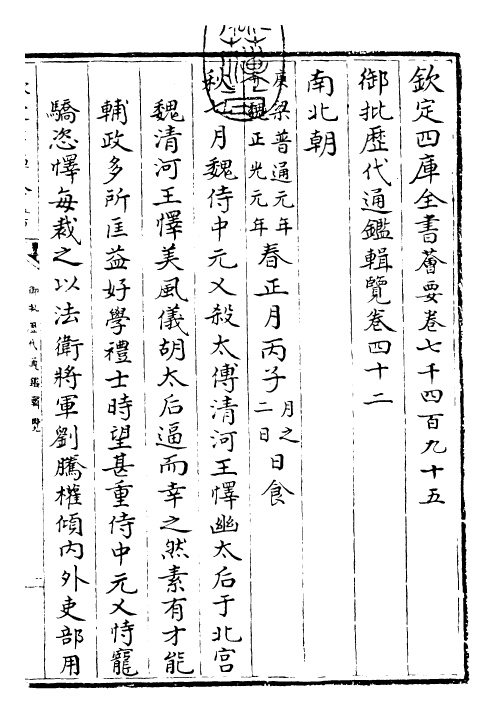 欽定四庫全書薈要卷七千四百九十五
御批歷代通鑑輯覽卷四十二
南北朝
庚子梁普通元年魏正光元年春正月丙子月之二日日食
秋七月魏侍中元乂殺太傅清河王懌幽太后于北宫
魏清河王懌美風儀胡太后逼而幸之然素有才能
輔政多所匡益好學禮士時望甚重侍中元乂恃寵
驕恣懌每裁之以法衛將軍劉騰權傾內外吏部用
御批歷代通鑑輯覽